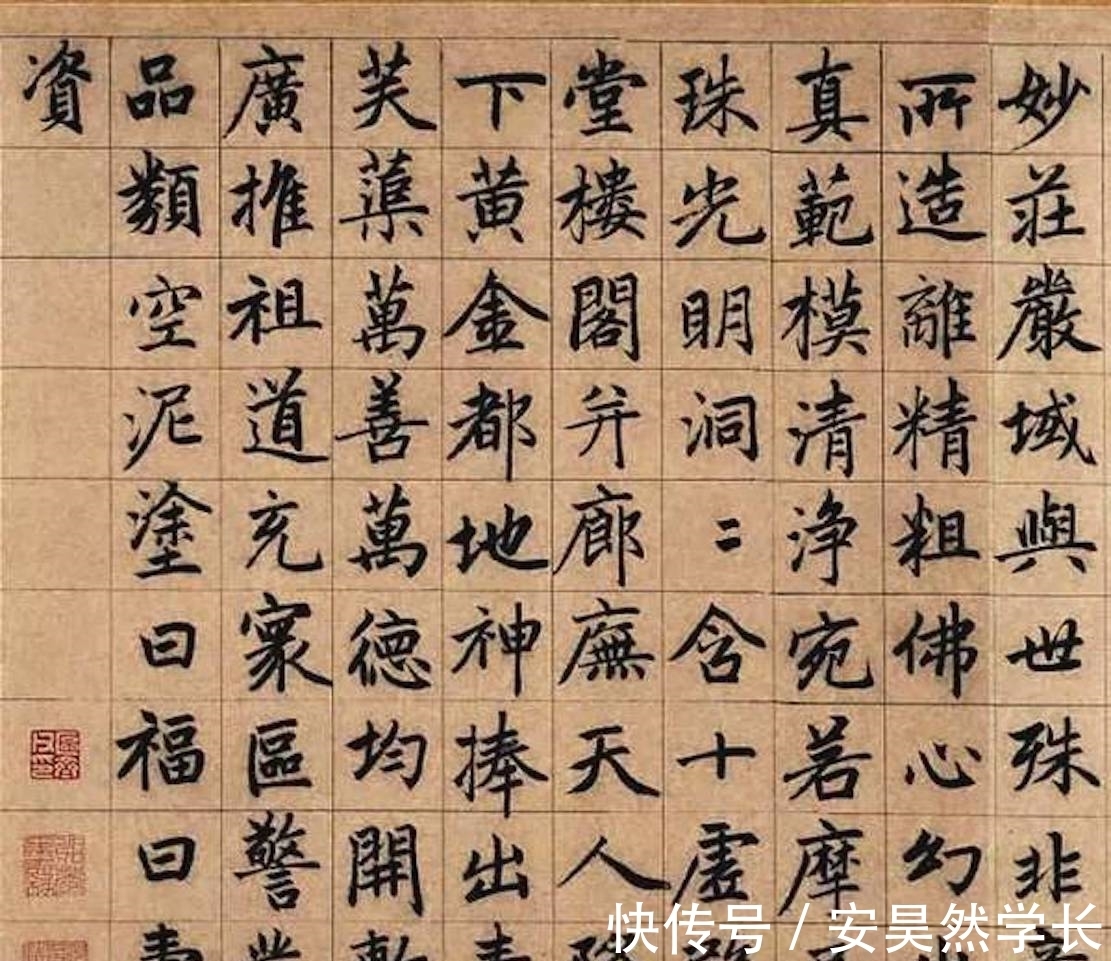 妙莊嚴域與世殊非
所造離精粗佛心幻
真範模清淨宛若摩
珠光明洞二含十虛
堂樓閣并廊廡天人
下黃金都地神捧出
芙蕖萬善萬德均開
廣推祖道充寰區警
品類空泥塗曰福曰
資
快传号 / 安昊然学长